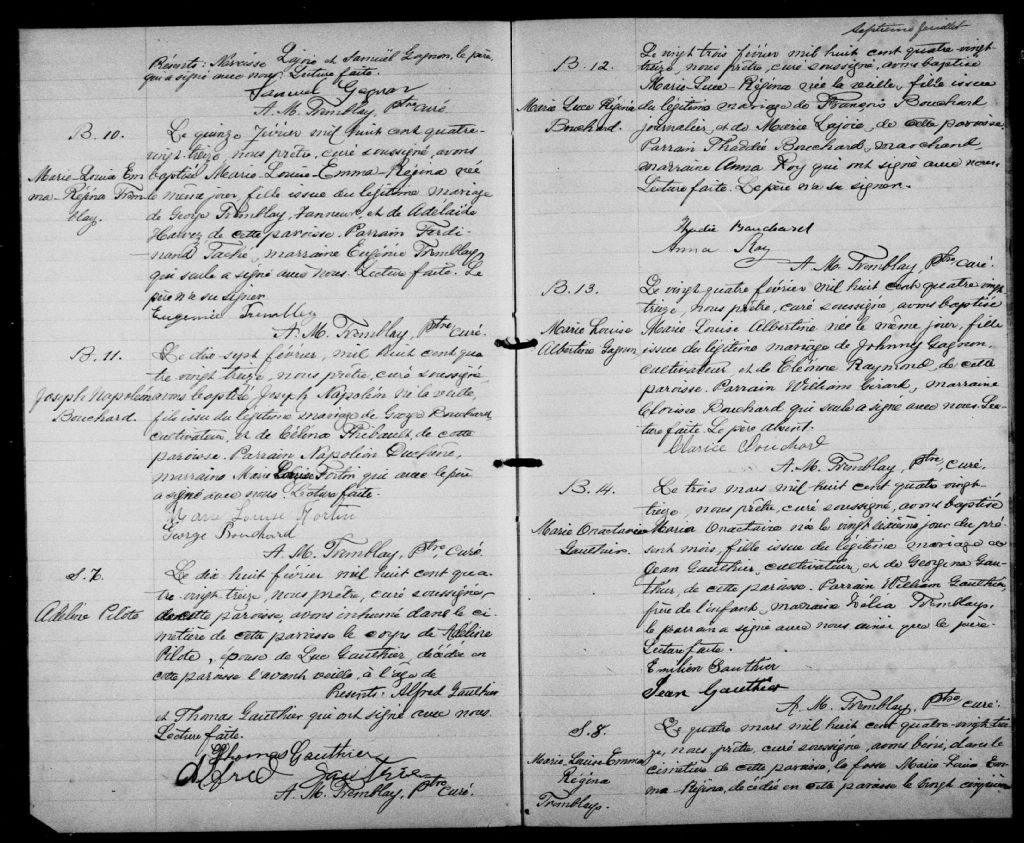 Présents: Narcisse Lajoie et Samüel Gagnon, le père,
qui a signé avec nous. Lecture faite.
Samuel Gagnon
A. M. Tremblay, Ptre Curé.
B. 10.
Marie-Louise Em
ma-Régina Trem
blay.
Le quinze février mil huit cent quatre-
vingt-treize, nous prêtre, curé soussigné, avons
baptisé Marie-Louise-Emma-Régina née
le même jour, fille issue du légitime mariage
de George Tremblay, Tanneur, et de Adélaïde
Harvez de cette paroisse. Parrain Ferdi-
nand Taché, marraine Eugénie Tremblay
qui seule a signé avec nous. Lecture faite. Le
père n'a su signer.
Eugenie Trembley
A. M. Tremblay, Ptre Curé.
B. 11.
Joseph Napoléon
Bouchard.
Le dix sept février, mil huit cent qua
tre vingt treize, nous prêtre, curé soussigné,
avons baptisé Joseph Napoléon né la veille,
fils issu du légitime mariage de George Bouchard
cultivateur, et de Célina Thibault, de cette
paroisse. Parrain Napoléon Duchêne,
marraine Marie Louise Fortin qui avec le père
a signé avec nous. Lecture faite.
Marie Louise Fortin
George Bouchard
A. M. Tremblay, Ptre Curé.
S. 7.
Adéline Pilote
Le dix huit février mil huit cent qua
tre-vingt-treize, nous prêtre, curé soussigné,
de cette paroisse, avons inhumé dans le ci-
metière de cette paroisse le corps de Adéline
Pilote, épouse de Luc Gauthier décédée en
cette paroisse l'avant veille, à l'âge de
Présents: Alfred Gauthier
et Thomas Gauthier qui ont signé avec nous.
Lecture faite.
Thomas Gauthier
Alfred Gauthier
A. M. Tremblay, Ptre Curé.
Septième feuillet
B. 12.
Marie Luce Régina
Bouchard.
Le vingt trois février mil huit cent quatre-vingt
treize, nous prêtre, curé soussigné, avons baptisé
Marie-Luce-Régina née la veille, fille issue
du légitime mariage de François Bouchard
journalier, et de Marie Lajoie, de cette paroisse.
Parrain Thaddée Bouchard, marchand,
marraine Anna Roy qui ont signé avec nous.
Lecture faite. Le père n'a su signer.
Thadée Bouchard
Anna Roy
A. M. Tremblay, Ptre Curé.
B. 13.
Marie Louise
Albertine Gagnon
Le vingt quatre février mil huit cent quatre vingt
treize, nous prêtre, curé soussigné, avons baptisé
Marie Louise Albertine née le même jour, fille
issue du légitime mariage de Johnny Gagnon
cultivateur et de Eléonore Raymond de cette
paroisse. Parrain William Girard, marraine
Clarisse Bouchard qui seule a signé avec nous. Lec-
ture faite. Le père absent.
Clarice Bouchard
A. M. Tremblay, Ptre, curé.
B. 14.
Marie Onactaire
Gauthier.
Le trois mars mil huit cent quatre vingt-
treize, nous prêtre, curé soussigné, avons baptisé
Maria Onactaire née le vingt jour du pré-
sent mois, fille issue du légitime mariage de
Jean Gauthier, cultivateur, et de Georgina Gau-
thier, de cette paroisse. Parrain William Gauthier,
frère de l'enfant, marraine Délia Tremblay,
le parrain a signé avec nous ainsi que le père.
Lecture faite.
Emilien Gauthier
Jean Gauthier
A. M. Tremblay, Ptre curé.
S. 8.
Marie Louise Emma
Régina
Tremblay.
Le quatre mars mil huit cent quatre-vingt trei
ze, nous prêtre, curé soussigné, avons béni, dans le
cimetière de cette paroisse, la fosse Marie Louise Em
ma-Régina, décédée en cette paroisse le vingt cinquième